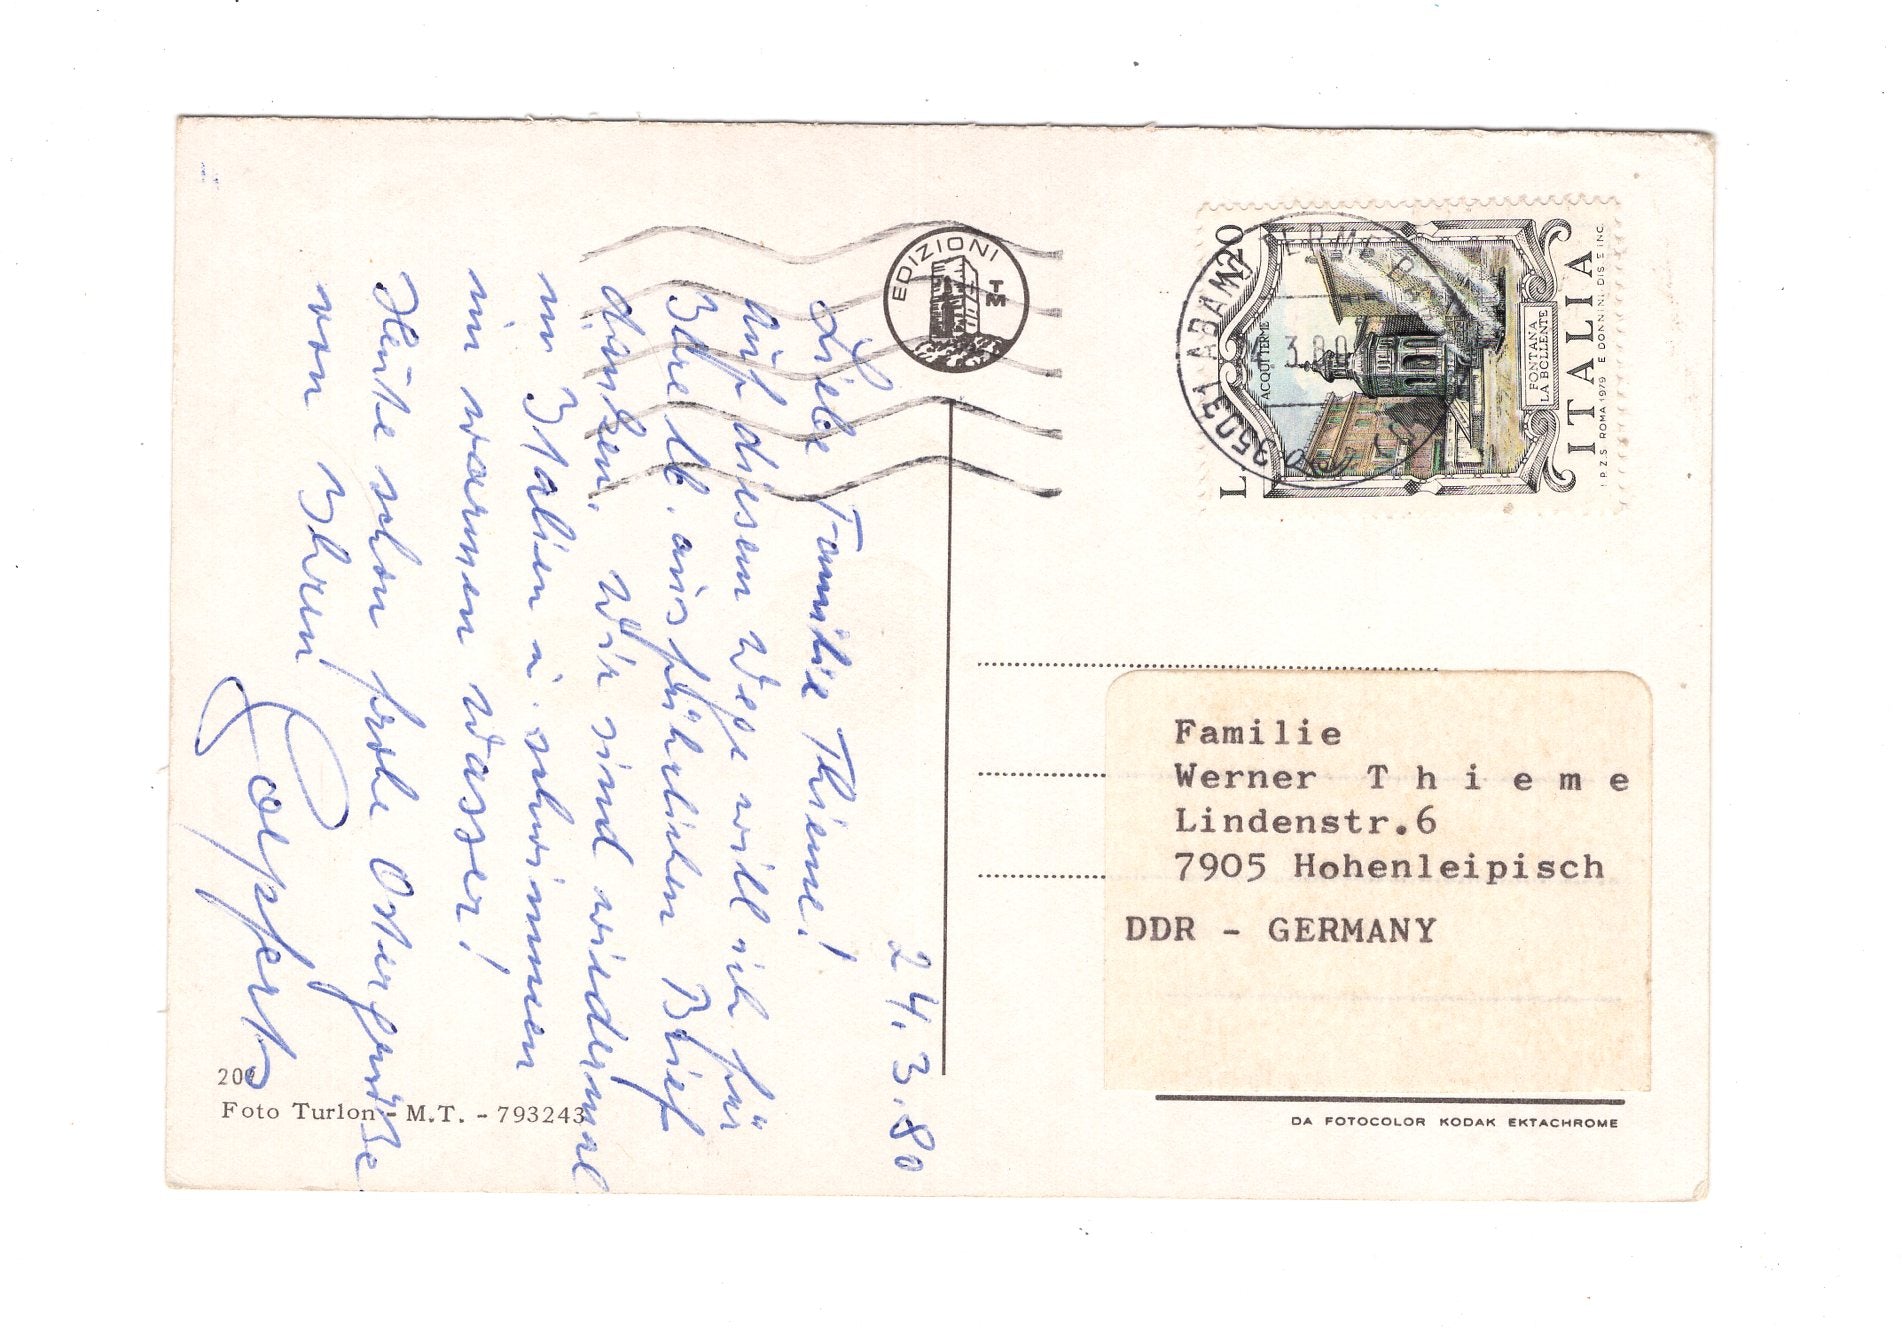 24.3.80
Liebe Familie Thieme!
Auf diesem Wege will ich für
Ihren lb. ausführlichen Brief
danken. Wir sind wiedermal
in Italien u. schwimmen
im warmen Wasser!
Heute schon frohe Ostergrüße
von Ihren
EDIZIONI
TM
L. 120
ACQUI TERME
FONTANA
LA BOLLENTE
ITALIA
I.P.Z.S. ROMA 1979 E. DONNINI DIS. E INC.
35031 ABANO TERME
3.80
Familie
Werner T h i e m e
Lindenstr.6
7905 Hohenleipisch
DDR - GERMANY
Foto Turlon - M.T. - 793243
DA FOTOCOLOR KODAK EKTACHROME